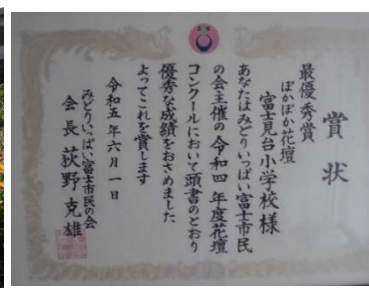 賞状
最優秀賞
ぽかぽか花壇
富士見台小学校様
あなたはみどりいっぱい富士市民
の会主催の令和四年度花壇
コンクールにおいて頭書のとおり
優秀な成績をおさめました
よってこれを賞します
令和五年六月一日
みどりいっぱい富士市民の会
会長荻野克雄